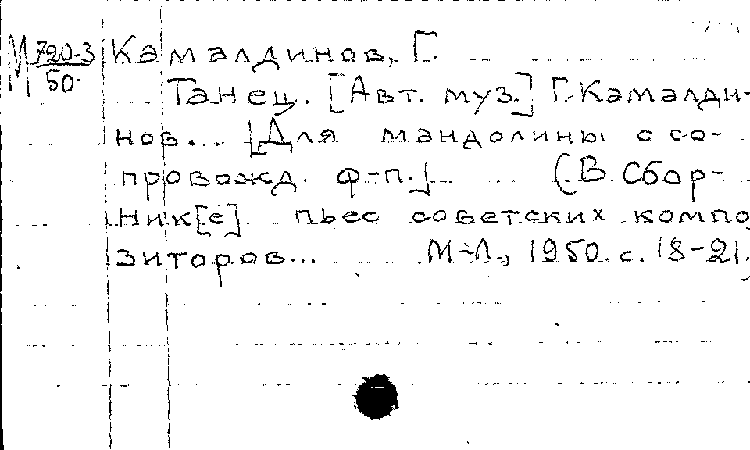 М 720-3/50 Камалдинов, Г.
Танец. [Авт. муз.] Г. Камалди-
нов... [Для мандолины с со-
провожд. ф-п.] (В Сбор-
ник[е] пьес советских компо
зиторов... М-Л., 1950. с. 18-21.